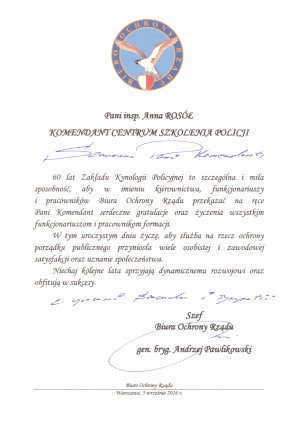 BIURO OCHRONY RZĄDU
Pani insp. Anna ROSÓŁ
KOMENDANT CENTRUM SZKOLENIA POLICJI
Szanowna Pani Komendant,
60 lat Zakładu Kynologii Policyjnej to szczególna i miła
sposobność, aby w imieniu kierownictwa, funkcjonariuszy
i pracowników Biura Ochrony Rządu przekazać na ręce
Pani Komendant serdeczne gratulacje oraz życzenia wszystkim
funkcjonariuszom i pracownikom formacji.
W tym uroczystym dniu życzę, aby służba na rzecz ochrony
porządku publicznego przyniosła wiele osobistej i zawodowej
satysfakcji oraz uznanie społeczeństwa.
Niechaj kolejne lata sprzyjają dynamicznemu rozwojowi oraz
obfitują w sukcesy.
Z wyrazami szacunku i
Szef
Biura Ochrony Rządu
gen. bryg. Andrzej Pawlikowski
Biuro Ochrony Rządu
Warszawa, 5 września 2016 r.